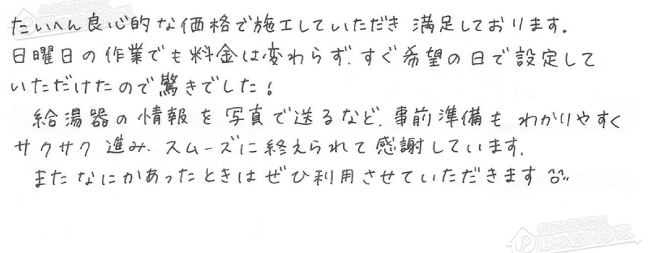 たいへん良心的な価格で施工していただき 満足しております。
日曜日の作業でも料金は変わらず、すぐ希望の日で設定して
いただけたので驚きでした!
給湯器の情報を写真で送るなど、事前準備もわかりやすく
サクサク進み、スムーズに終えられて感謝しています。
またなにかあったときはぜひ利用させていただきます^^